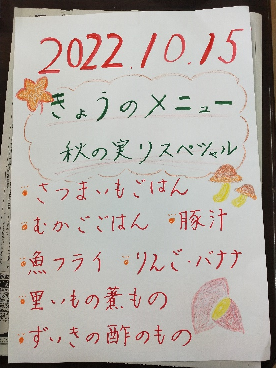 2022.10.15
きょうのメニュー
秋の実りスペシャル
・さつまいもごはん
・むかごごはん ・豚汁
・魚フライ ・りんご・バナナ
・里いもの煮もの
・ずいきの酢のもの